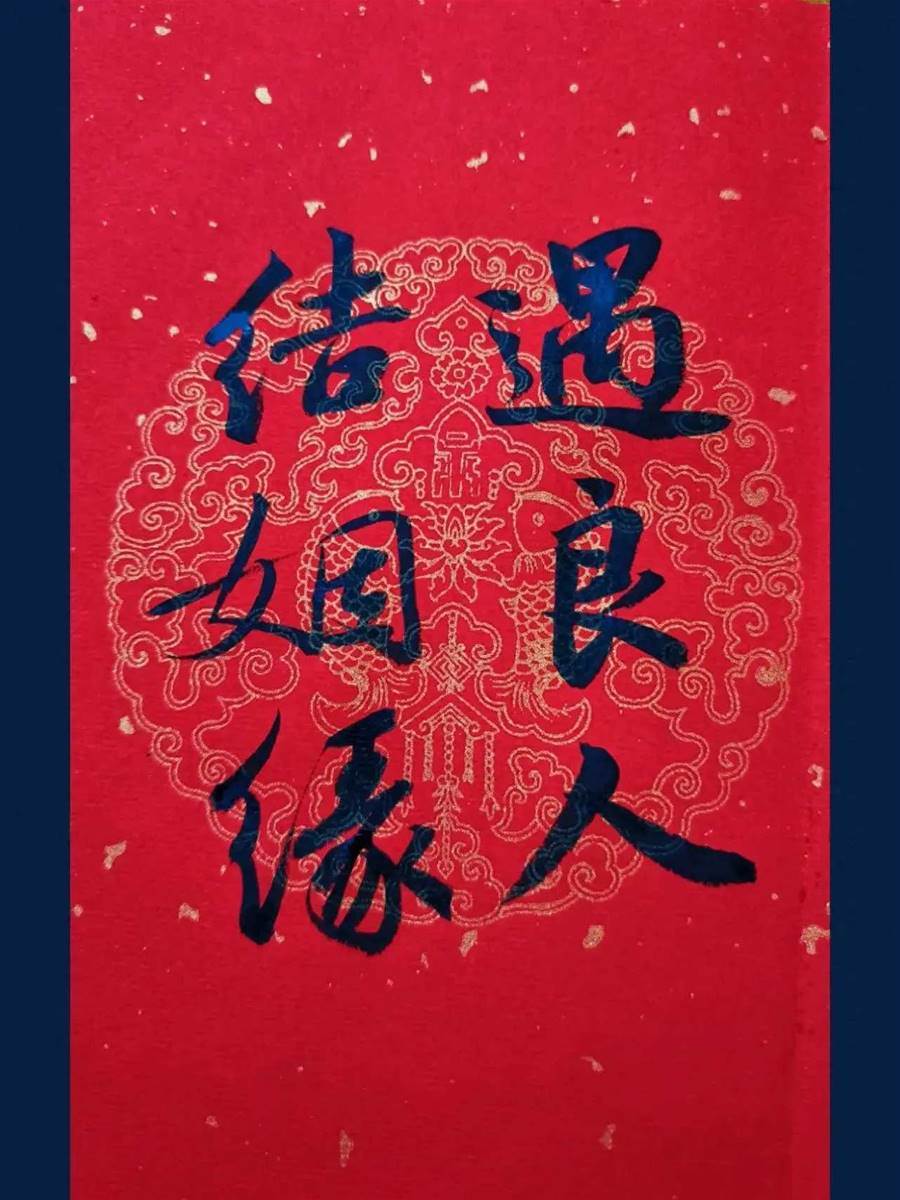 遇良人
结姻缘